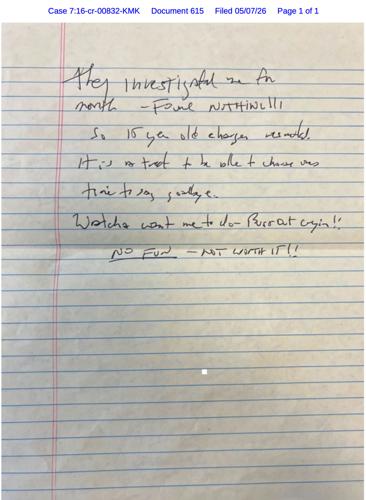 Case 7:16-cr-00832-KMK Document 615 Filed 05/07/26 Page 1 of 1
They investigated me for
month - Found NOTHING!!!
So 15 year old charges resulted.
It is a treat to be able to choose
time to say goodbye.
Watcha want me to do - Burst out cryin!!
NO FUN - NOT WORTH IT!!